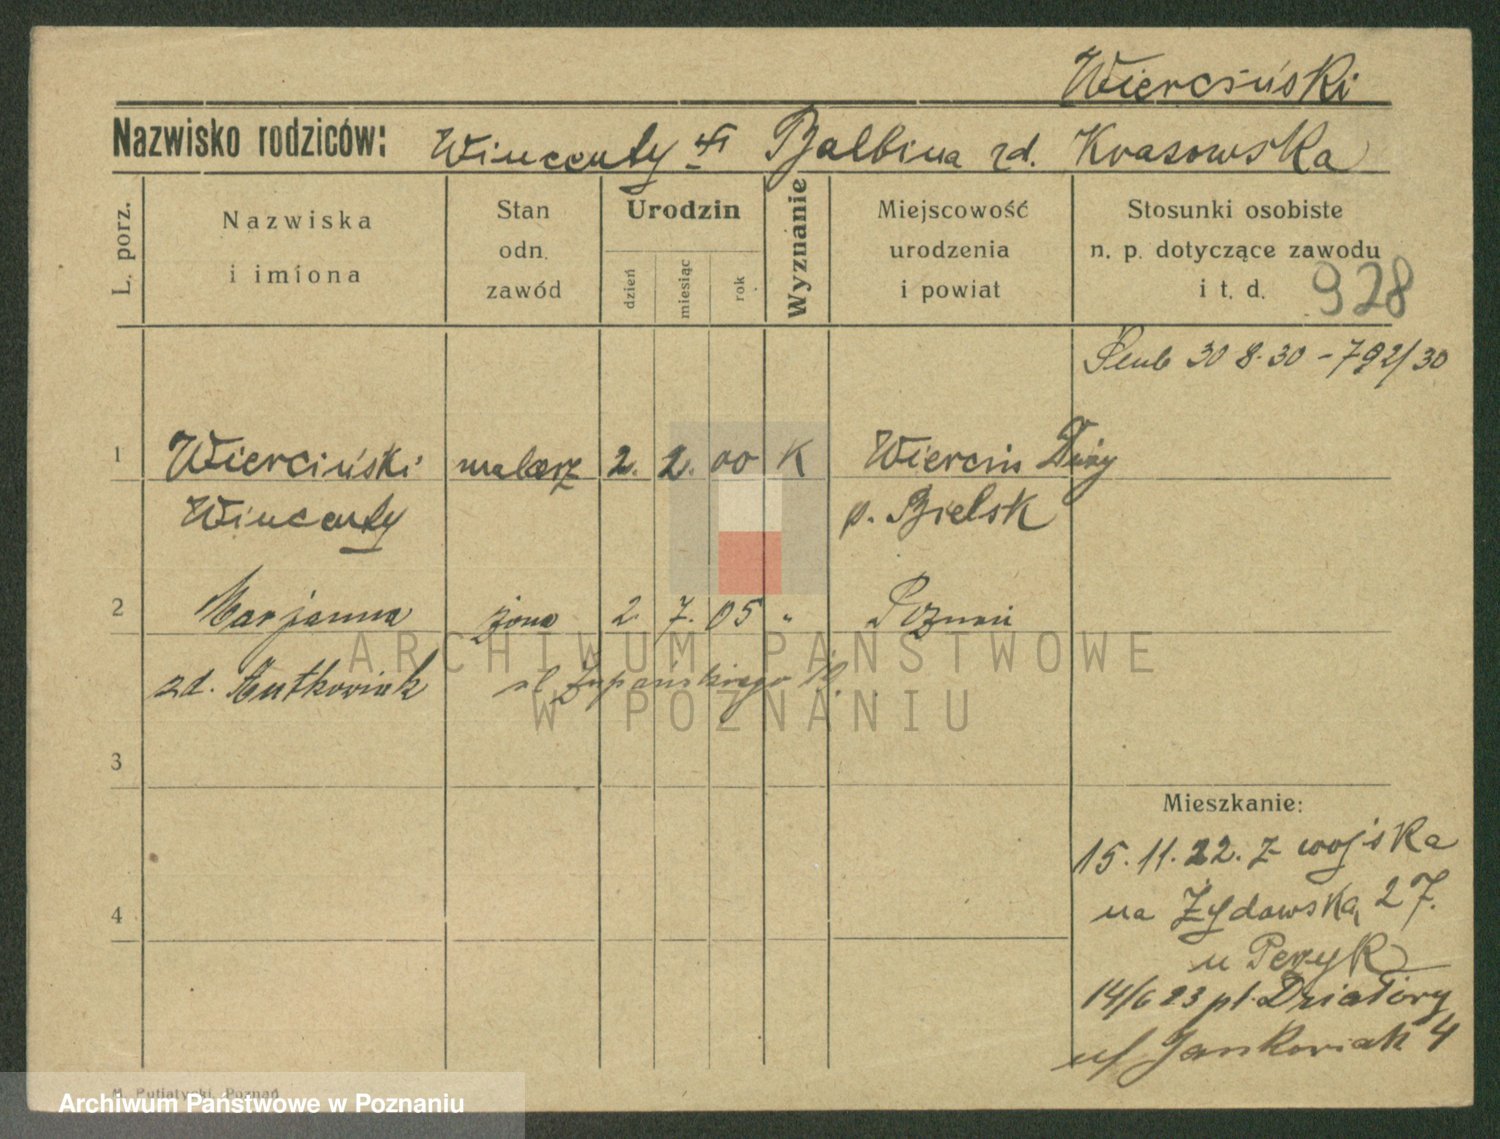 Wierciński
Nazwisko rodziców: Wincenty i Balbina zd. Krasowska
L. porz.
Nazwiska
i imiona
Stan
odn.
zawód
Urodzin
dzień
miesiąc
rok
Wyznanie
Miejscowość
urodzenia
i powiat
Stosunki osobiste
n. p. dotyczące zawodu
i t. d.
928
Ślub 30 8.30 - 792/30
1 Wierciński malarz 2. 2. 00 K Wiercin Duży
Wincenty p. Bielsk
2 Marjanna żona 2 7. 05 " Poznań
zd. ul Żupańskiego
3
4
Mieszkanie:
15.11.22. z wojska
na Żydowską 27.
u Peryk
14/6 23 pl. Działowy
Jankowiak 4
ARCHIWUM PAŃSTWOWE
W POZNANIU
M. Putiatycki, Poznań
Archiwum Państwowe w Poznaniu